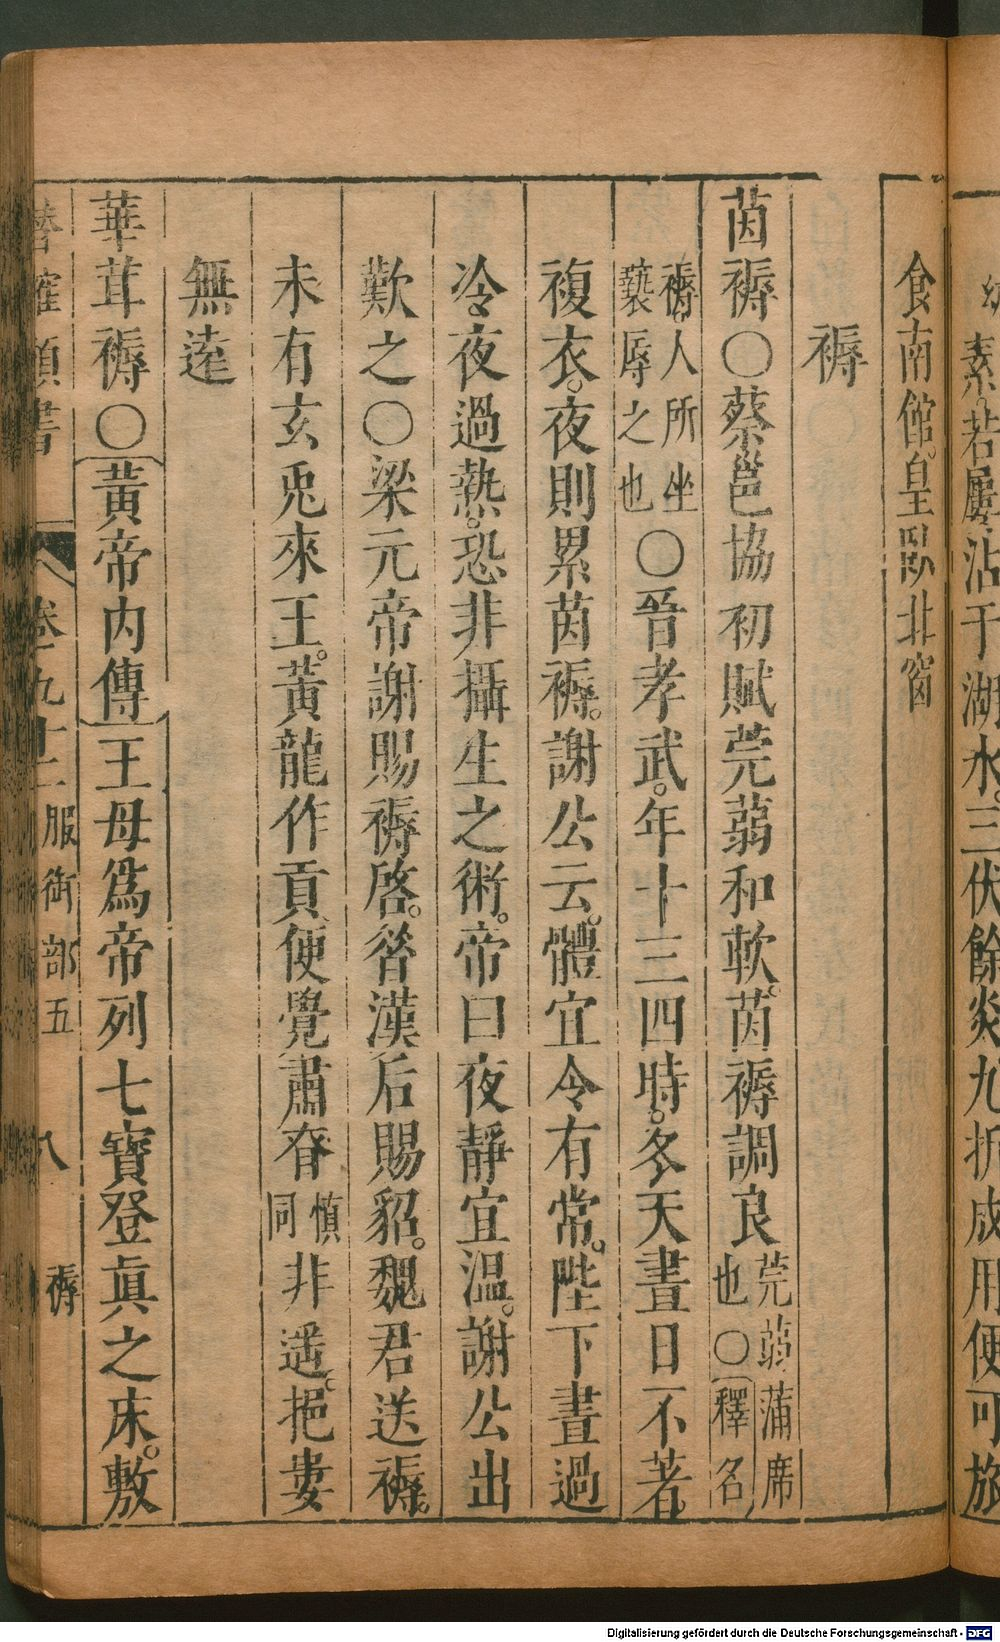 素。若屢沾于湖水。三伏餘炎。九折成用。便可旅
食南館。皇臥北窗
褥
茵褥〇蔡邕協初賦莞蒻和軟。茵褥調良莞蒻蒲席也〇釋名
褥。人所坐褻辱之也〇晉孝武。年十三四時。冬天晝日不著
複衣。夜則累茵褥。謝公云。體宜令有常。陛下晝過
冷。夜過熱。恐非攝生之術。帝曰夜靜宜温。謝公出
歎之〇梁元帝謝賜褥啓。昝漢后賜貂。魏君送褥。
未有玄兎來王。黃龍作貢便覺肅昚慎同非遥。挹婁
無遠
華茸褥〇黃帝内傳王母爲帝列七寶登眞之床。敷
潛確類書 卷之九十二 服御部五 八 褥
Digitalisierung gefördert durch die Deutsche Forschungsgemeinschaft - DFG